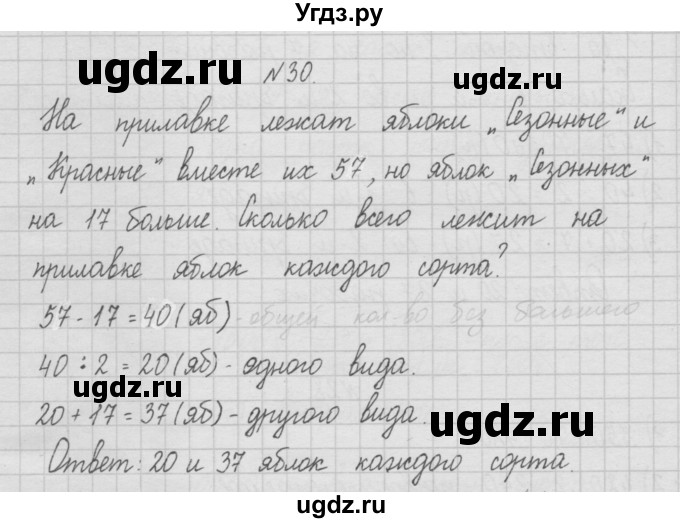 Угдз.ру
ugdz.ru ugdz.ru
№30.
На прилавке лежат яблоки „Сезонные" и
„Красные" вместе их 57, но яблок „Сезонных"
на 17 больше. Сколько всего лежит на
прилавке яблок каждого сорта?
57 - 17 = 40 (яб) - общей кол-во без большего
40 : 2 = 20 (яб) - одного вида.
20 + 17 = 37 (яб) - другого вида.
ugdz.ru ugdz.ru
Ответ: 20 и 37 яблок каждого сорта.
ugdz.ru